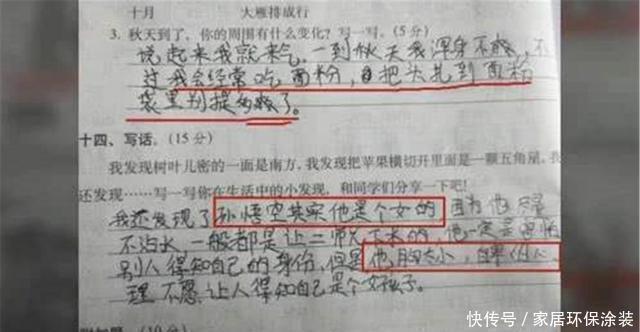 十月 大雁排成行
3. 秋天到了,你的周围有什么变化?写一写。(5分)
说起来我就来气。一到秋天我浑身不
过我会经常吃面粉,把头扎到面粉
袋里别提多
十四、写话。(15分)
我发现树叶儿密的一面是南方,我把苹果横切开里面是一颗五角星,我
还发现……写一写你在生活中的小发现,和同学们分享一下吧!
我还发现了孙悟空其实他是个女的 因为他
不沾水,一般都是让二师兄下水的,他一定是
别人得知自己的身份,但是他胸太小,
理不愿让人得知自己是个女孩子。
(10分)
快传号/家居环保涂装